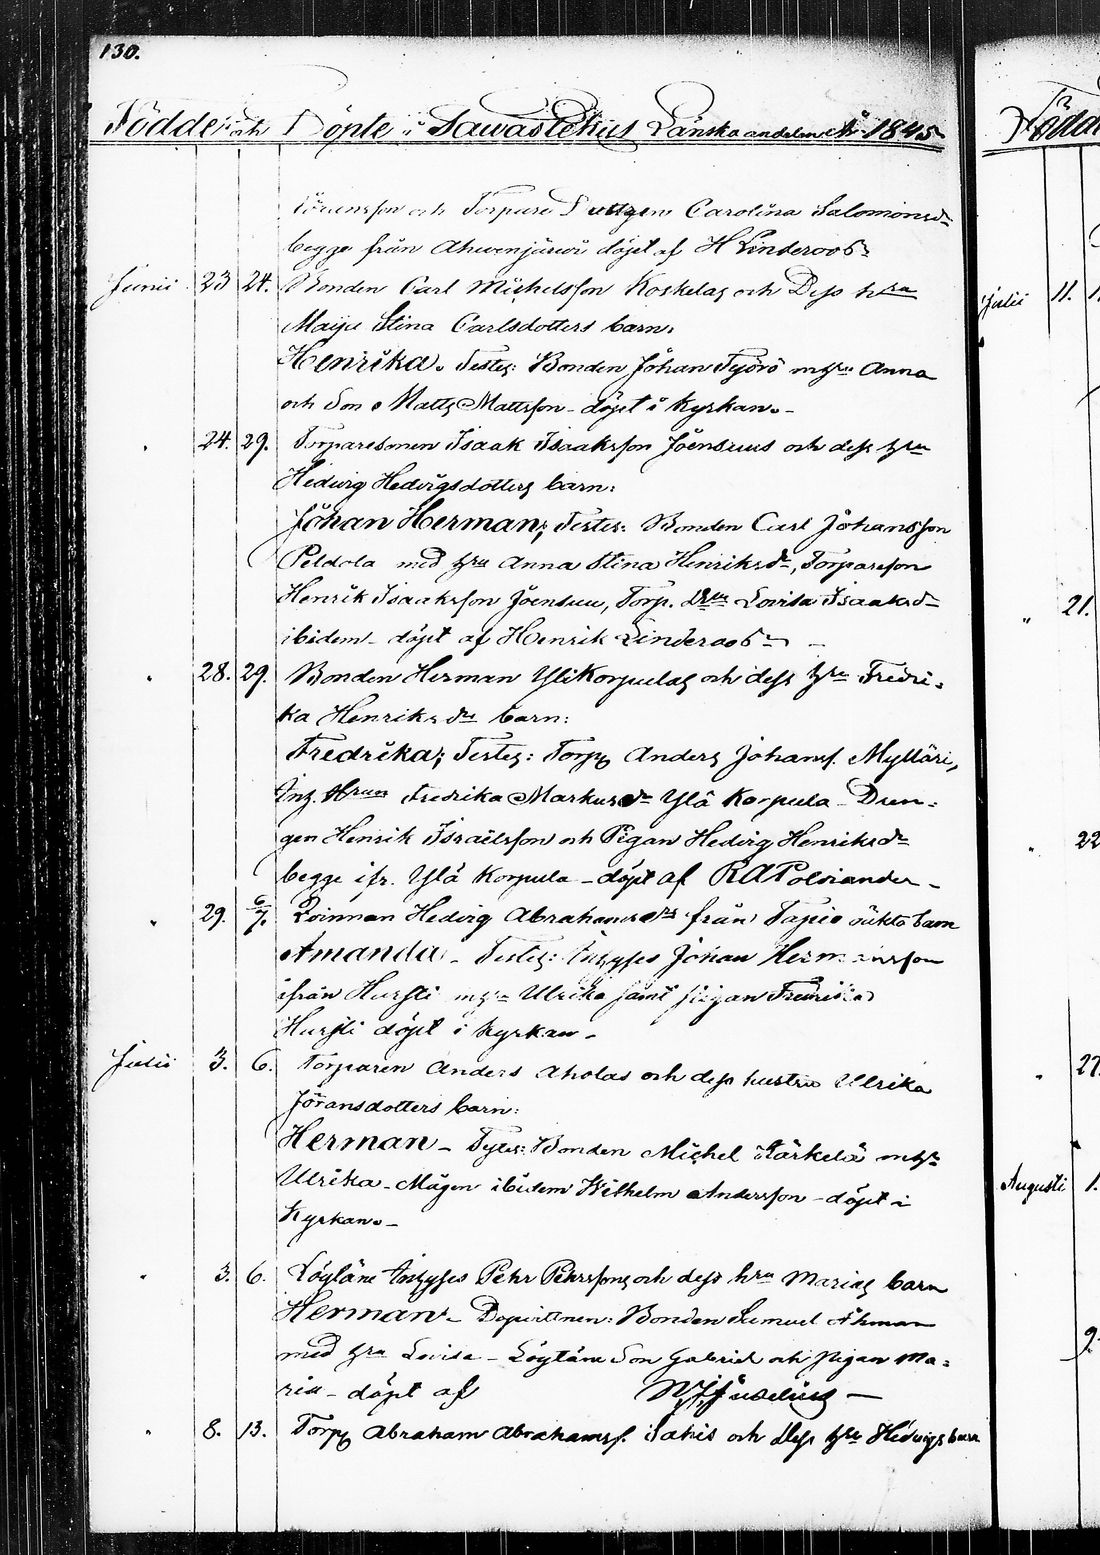 130.
Födde och Döpte i Tawastehus Länska andelen År 1845
Göransson och Torpare Carolina Salomonsdr
begge från Ahwenjärwi döpt af H Linderoos
Junii 23 24. Bonden Carl Michelsson Koskelas och Dess hru
Maija Stina Carlsdotters barn:
Henrika. Testes: Bonden Johan Työrö m hru Anna
och Son Matts Mattsson - döpt i Kyrkan. -
24. 29. Torparesonen Isaak Isaaksson Joensuus och dess hru
Hedvig Hedvigsdotters barn:
Johan Herman; Testes: Bonden Carl Johansson
Peldola med hru Anna Stina Henriksdr, Torpareson
Henrik Isaaksson Joensuu, Torp. Lovisa Isaaksd
ibidem - döpt af Henrik Linderoos -
28. 29. Bonden Herman Ylikorpulas och dess hru Fredri-
ka Henriksdrs barn:
Fredrika; Testes: Torp Anders Johanss. Mylläri,
Inh. Fredrika Markusdr Ylä Korpula - Dren-
gen Henrik Israelsson och Pigan Hedvig Henriksdr
begge ifr. Ylä Korpula - döpt af R A Polviander -
29. 6/7. Qvinnan Hedvig Abrahamsdrs från Tapio oäkta barn
Amanda - Testes: Inhyses Johan Hermansson
ifrån Hursti m hru Ulrika samt pigan Fredrika
Hursti döpt i Kyrkan -
Julii 3. 6. Torparen Anders Aholas och dess hustru Ulrika
Jöransdotters barn:
Herman - Testes: Bonden Michel Härkelä m hr
Ulrika - Mågen ibidem Wilhelm Andersson - döpt i
Kyrkan. -
3. 6. Löytäne Inhyses Pehr Pehrssons och dess hru Marias barn
Herman - Dopvittnen: Bonden Samuel Åhman
med hru Lovisa - Löytäne Son Gabriel och pigan Ma-
ria - döpt af
8. 13. Torp Abraham Abrahamss. Sakis och Dess hru Hedvigs barn
Julii 11.
" 21.
" 22
" 27.
Augusti 1.
9.